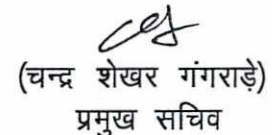 (चन्द्र शेखर गंगराड़े)
प्रमुख सचिव